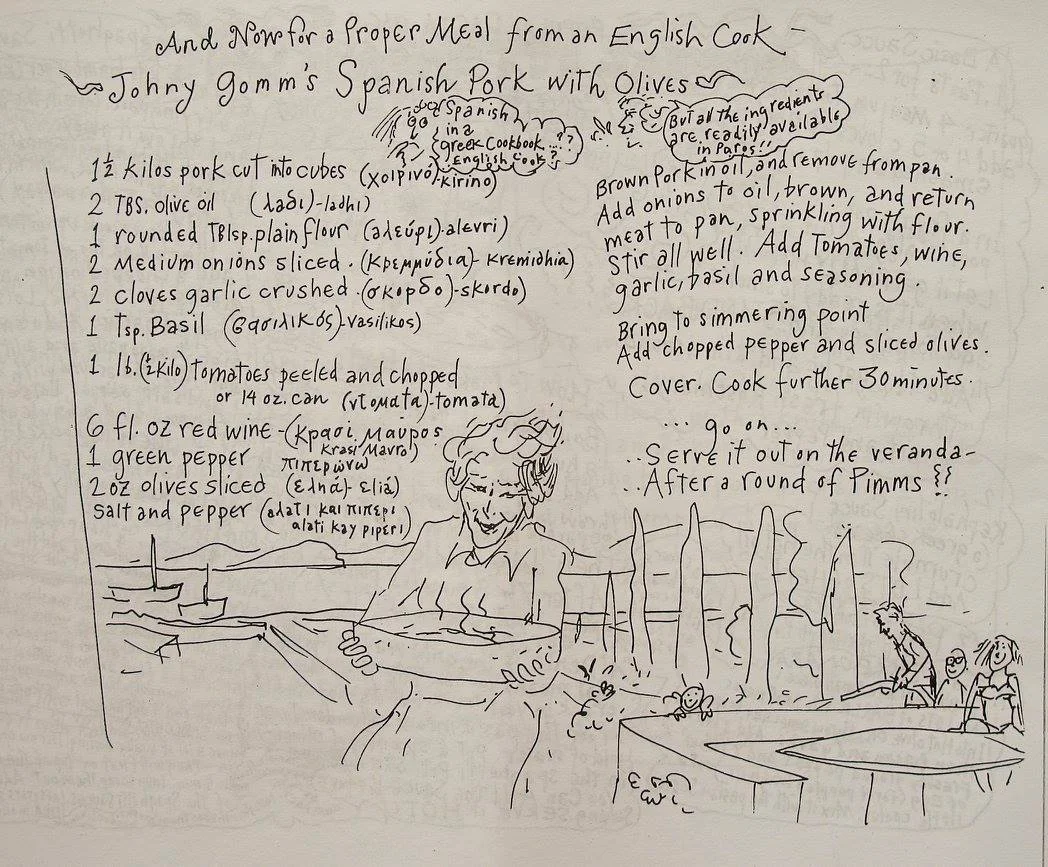 And Now for a Proper Meal from an English Cook –
Johny Gomm's Spanish Pork with Olives
Spanish
in a
Greek Cookbook...??
English Cook?
But all the ingredients
are readily available
in Paros!!
1 ½ kilos pork cut into cubes (χοιρινό)-kirino
2 TBS. olive oil (λαδι)-ladhi)
1 rounded TBlsp. plain flour (αλεύρι)-alevri)
2 Medium onions sliced. (κρεμμύδια)- kremidhia)
2 cloves garlic crushed. (σκορδο)-skordo)
1 Tsp. Basil (βασιλικός)-vasilikos)
1 lb. (½ kilo) tomatoes peeled and chopped
or 14 oz. can (ντοματα)-tomata)
6 fl. oz red wine - (κρασί μαυρος
krasi mavro)
1 green pepper πιπερώνω
2 oz olives sliced (εληά)- eliá)
salt and pepper (αλατι και πιπερι
alati kay piperi)
Brown Pork in oil, and remove from pan.
Add onions to oil, brown, and return
meat to pan, sprinkling with flour.
Stir all well. Add Tomatoes, wine,
garlic, basil and seasoning.
Bring to simmering point
Add chopped pepper and sliced olives.
Cover. Cook further 30 minutes.
... go on...
..Serve it out on the veranda-
..After a round of Pimms !!